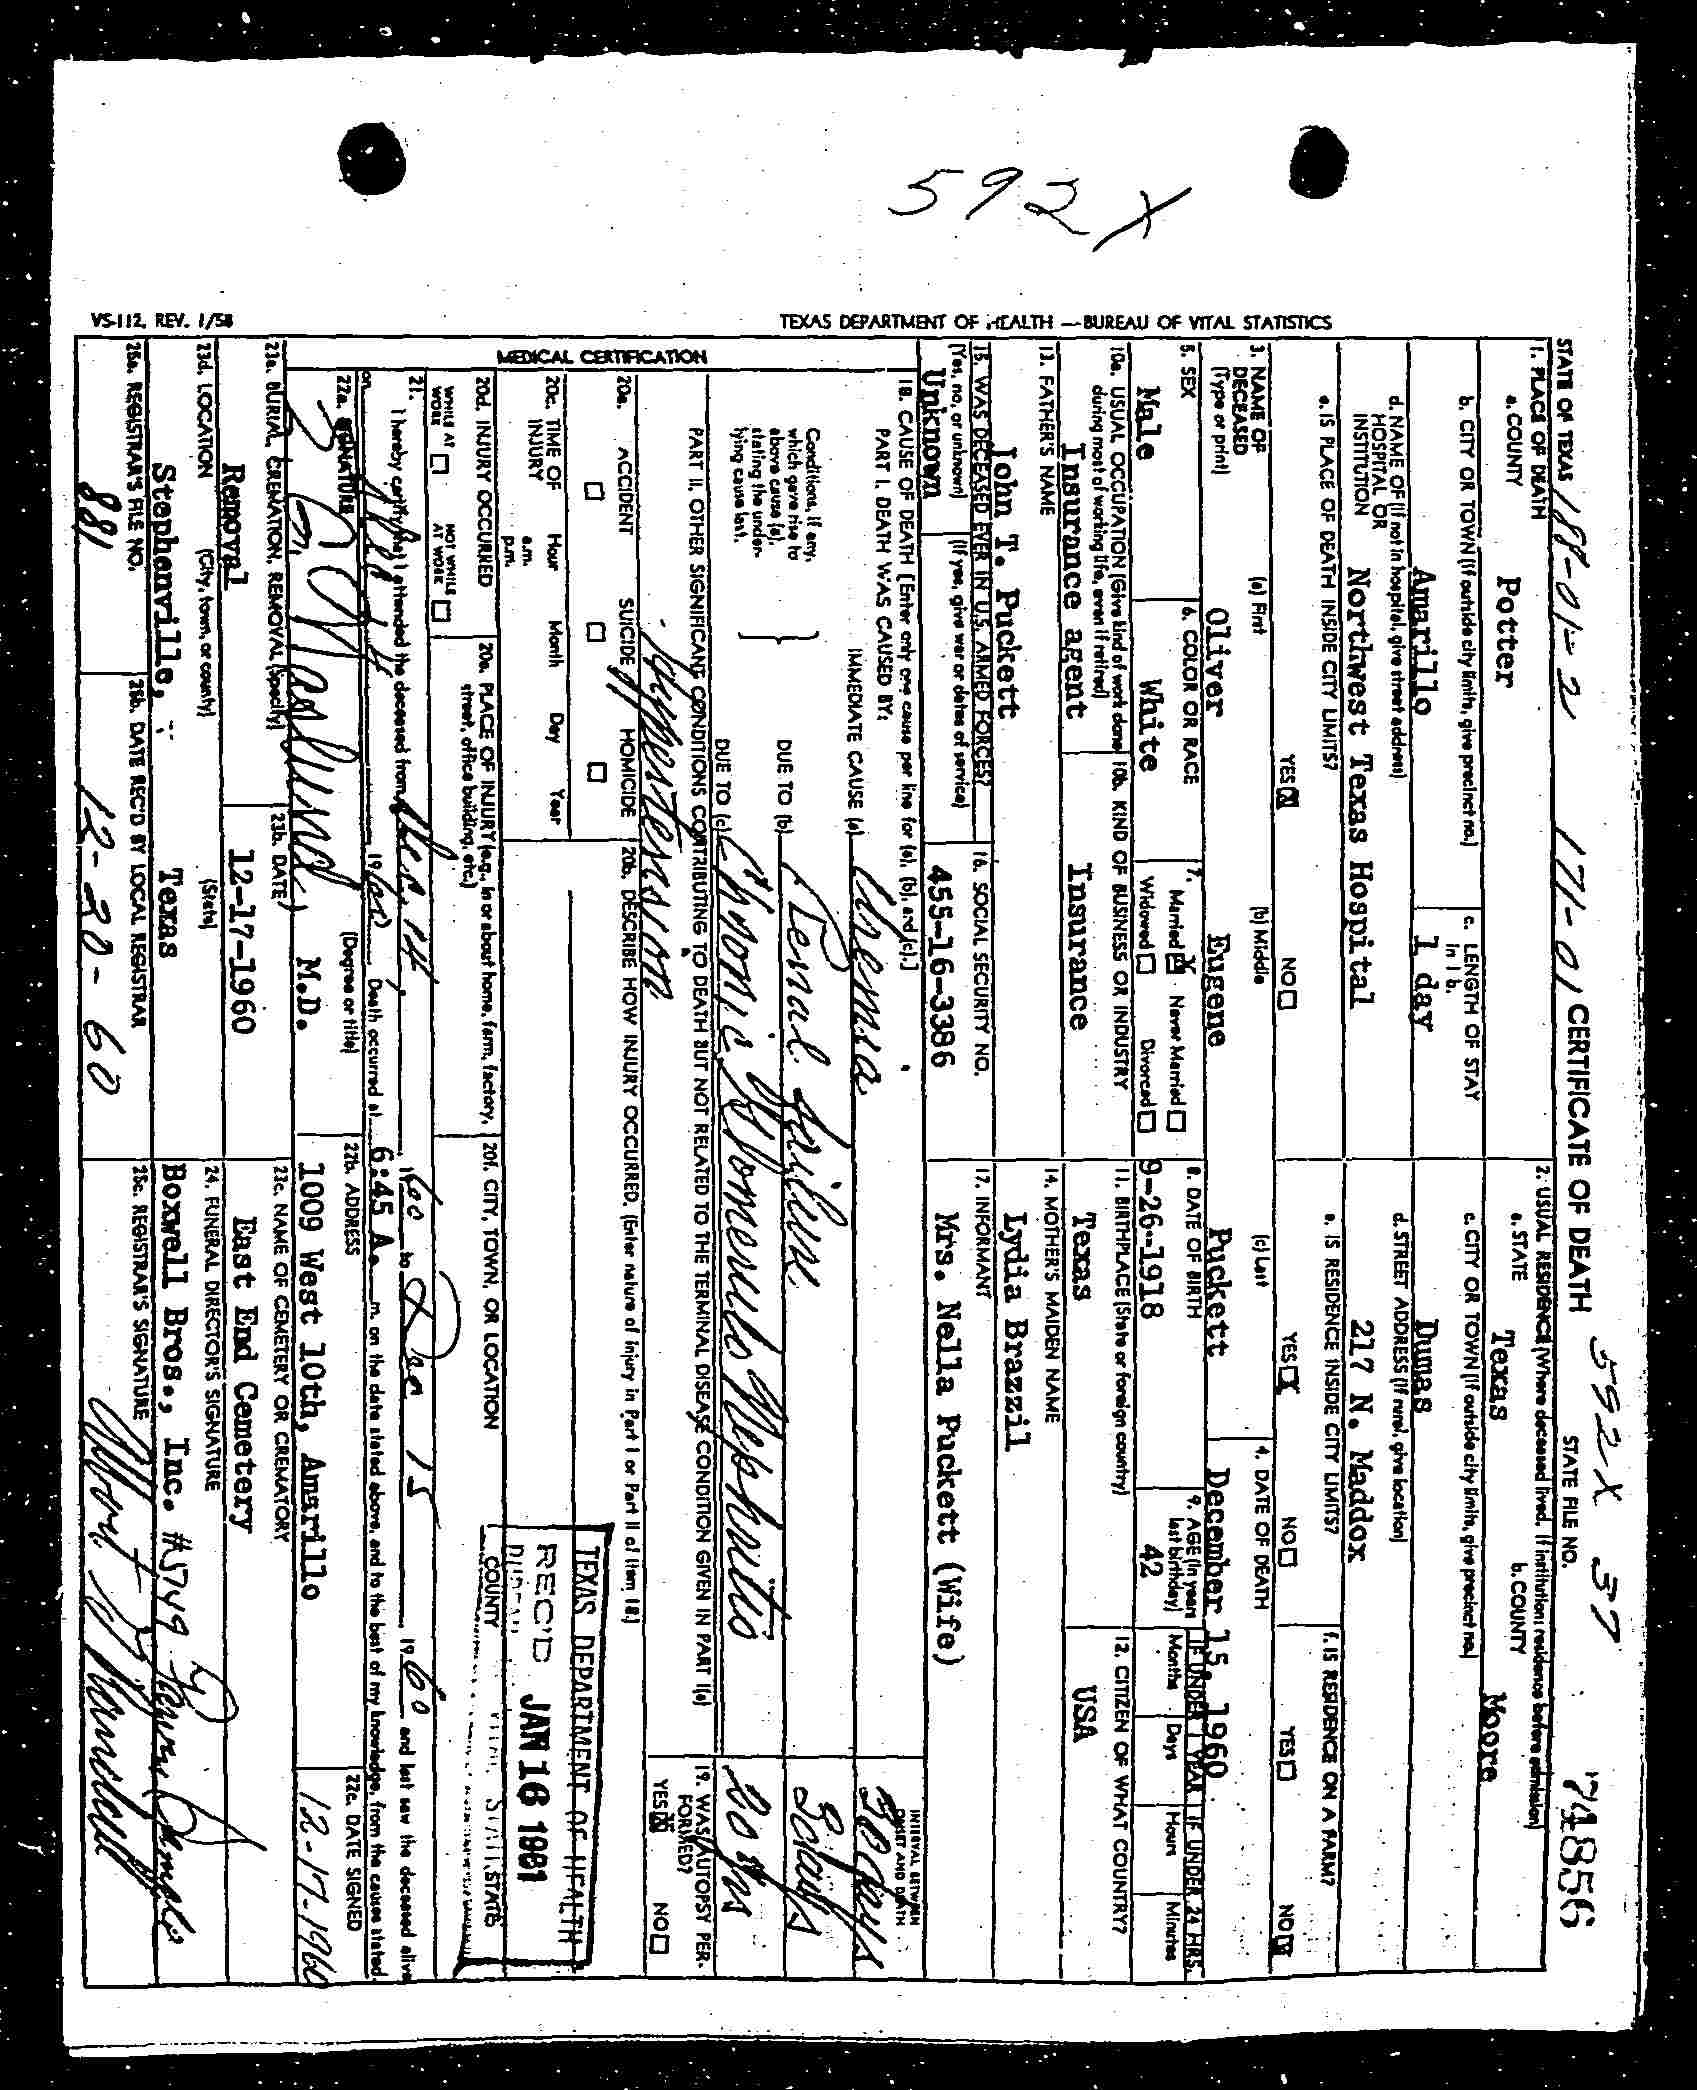 592X
TEXAS DEPARTMENT OF HEALTH — BUREAU OF VITAL STATISTICS
VS-112, REV. 1/58
STATE OF TEXAS 188-01-2 171-01 CERTIFICATE OF DEATH 592X 37 STATE FILE NO. 74856
1. PLACE OF DEATH
a. COUNTY Potter
2. USUAL RESIDENCE (Where deceased lived. If institution: residence before admission)
a. STATE Texas b. COUNTY Moore
b. CITY OR TOWN (If outside city limits, give precinct no.) Amarillo
c. LENGTH OF STAY in 1 b. 1 day
c. CITY OR TOWN (If outside city limits, give precinct no.) Dumas
d. NAME OF (If not in hospital, give street address) HOSPITAL OR INSTITUTION Northwest Texas Hospital
d. STREET ADDRESS (If rural, give location) 217 N. Maddox
e. IS PLACE OF DEATH INSIDE CITY LIMITS? YES X NO
e. IS RESIDENCE INSIDE CITY LIMITS? YES X NO
f. IS RESIDENCE ON A FARM? YES NO X
3. NAME OF DECEASED (Type or print) (a) First Oliver (b) Middle Eugene (c) Last Puckett
4. DATE OF DEATH December 15, 1960
5. SEX Male
6. COLOR OR RACE White
7. Married X Never Married Widowed Divorced
8. DATE OF BIRTH 9-26-1918
9. AGE (In years last birthday) 42
IF UNDER 1 YEAR Months Days IF UNDER 24 HRS. Hours Minutes
10a. USUAL OCCUPATION (Give kind of work done during most of working life, even if retired) Insurance agent
10b. KIND OF BUSINESS OR INDUSTRY Insurance
11. BIRTHPLACE (State or foreign country) Texas
12. CITIZEN OF WHAT COUNTRY? USA
13. FATHER'S NAME John T. Puckett
14. MOTHER'S MAIDEN NAME Lydia Brazzil
15. WAS DECEASED EVER IN U.S. ARMED FORCES? (Yes, no, or unknown) (If yes, give war or dates of service) Unknown
16. SOCIAL SECURITY NO. 455-16-3386
17. INFORMANT Mrs. Nella Puckett (Wife)
MEDICAL CERTIFICATION
18. CAUSE OF DEATH [Enter only one cause per line for (a), (b), and (c).]
INTERVAL BETWEEN ONSET AND DEATH
PART I. DEATH WAS CAUSED BY:
IMMEDIATE CAUSE (a) Uremia
Conditions, if any, which gave rise to above cause (a), stating the underlying cause last.
DUE TO (b) Renal Failure days
DUE TO (c) Chronic Glomerulo Nephritis yrs
PART II. OTHER SIGNIFICANT CONDITIONS CONTRIBUTING TO DEATH BUT NOT RELATED TO THE TERMINAL DISEASE CONDITION GIVEN IN PART I(a)
Hypertension
19. WAS AUTOPSY PERFORMED? YES X NO
20a. ACCIDENT SUICIDE HOMICIDE
20b. DESCRIBE HOW INJURY OCCURRED. (Enter nature of injury in Part I or Part II of item 18.)
20c. TIME OF INJURY Hour Month Day Year
a.m.
p.m.
20d. INJURY OCCURRED
WHILE AT WORK NOT WHILE AT WORK
20e. PLACE OF INJURY (e.g., in or about home, farm, factory, street, office building, etc.)
20f. CITY, TOWN, OR LOCATION COUNTY STATE
TEXAS DEPARTMENT OF HEALTH
REC'D JAN 16 1961
21. I hereby certify that I attended the deceased from Dec. 14, 1960 to Dec 15 1960 and last saw the deceased alive
on 1960. Death occurred at 6:45 A. m. on the date stated above, and to the best of my knowledge, from the causes stated.
22a. SIGNATURE (Degree or title) M.D.
22b. ADDRESS 1009 West 10th, Amarillo
22c. DATE SIGNED 12-17-1960
23a. BURIAL, CREMATION, REMOVAL (Specify) Removal
23b. DATE 12-17-1960
23c. NAME OF CEMETERY OR CREMATORY East End Cemetery
23d. LOCATION (City, town, or county) (State) Stephenville, Texas
24. FUNERAL DIRECTOR'S SIGNATURE Boxwell Bros., Inc. #5749 By
25a. REGISTRAR'S FILE NO. 881
25b. DATE REC'D BY LOCAL REGISTRAR 12-30-60
25c. REGISTRAR'S SIGNATURE